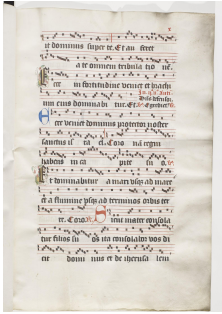 x
it dominus super te. Et au feret
a te omnem tribula tio ne.
Ecce in fortitudine veniet et brachi
um eius dominabi tur. Et
Ecce veniet dominus protector noster
sanctus is ra el. Coro na regni
habens in ca pite su o.
Et dominabitur a mari usq ad mare
et a flumine usq ad terminos orbis ter
re. Coro Sicut mater consola
tur filios su os ita consolabor vos di
cit domi nus et de iherusa lem